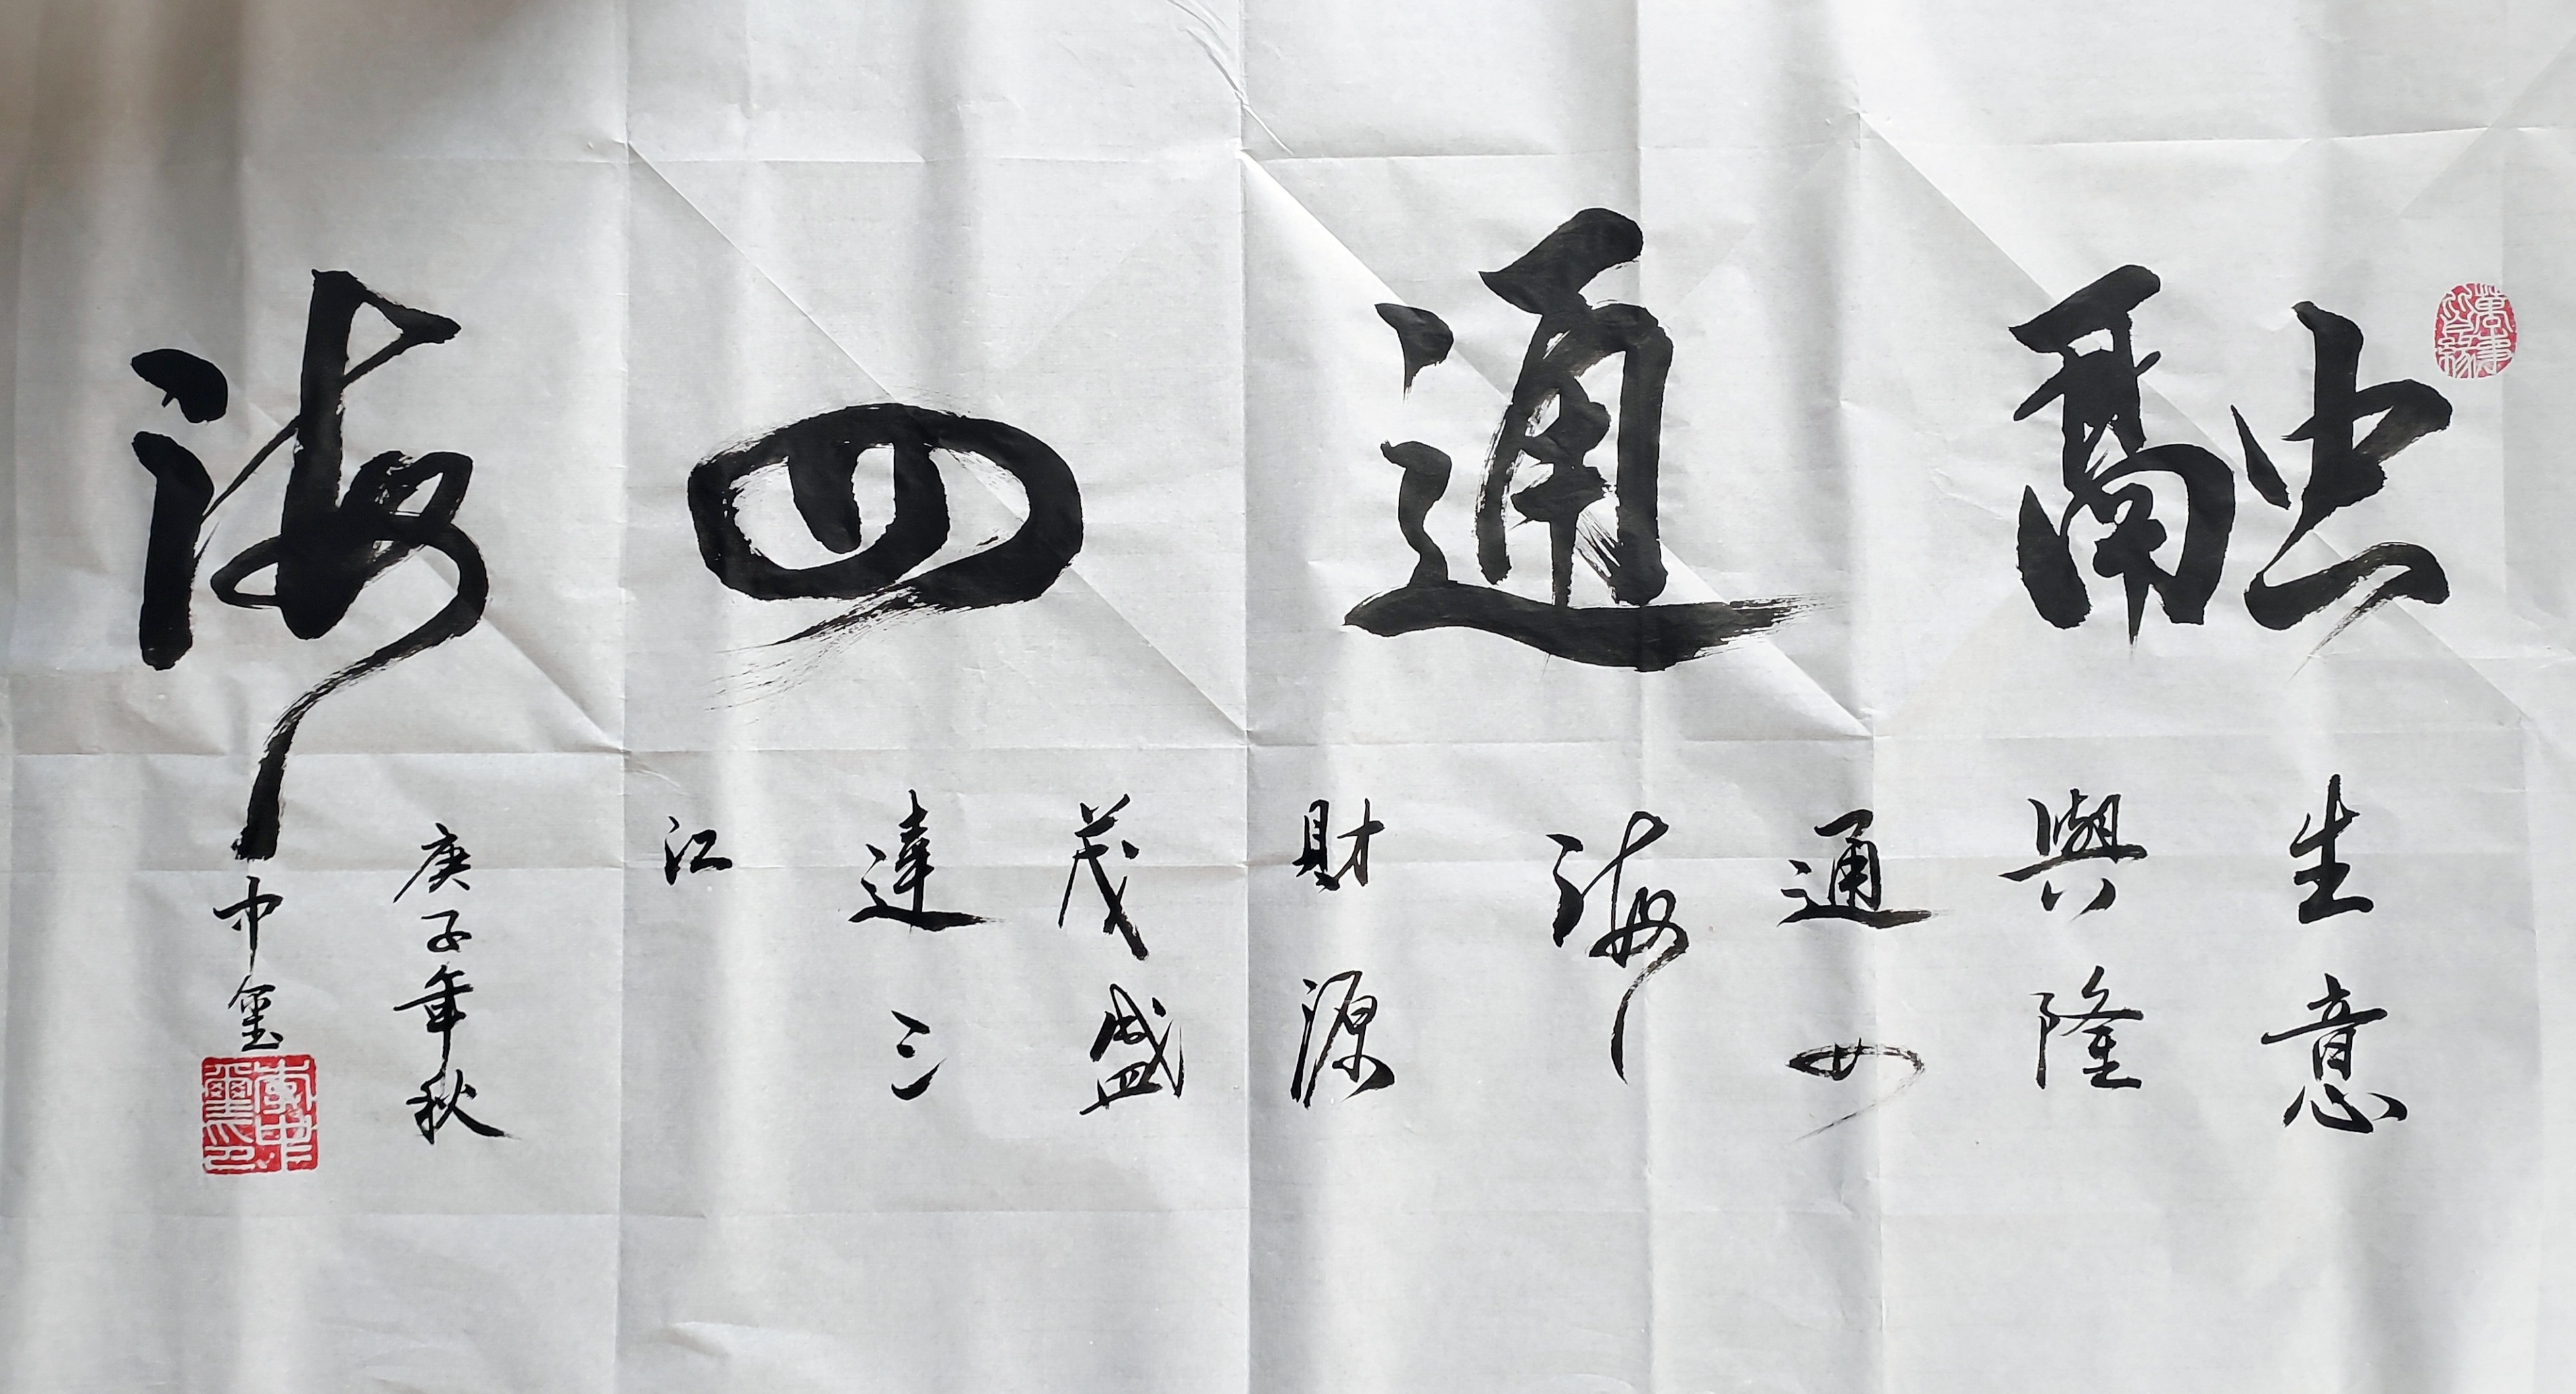 融通四海
生意
興隆
通四
海
財源
茂盛
達三
江
庚子年秋
中璽